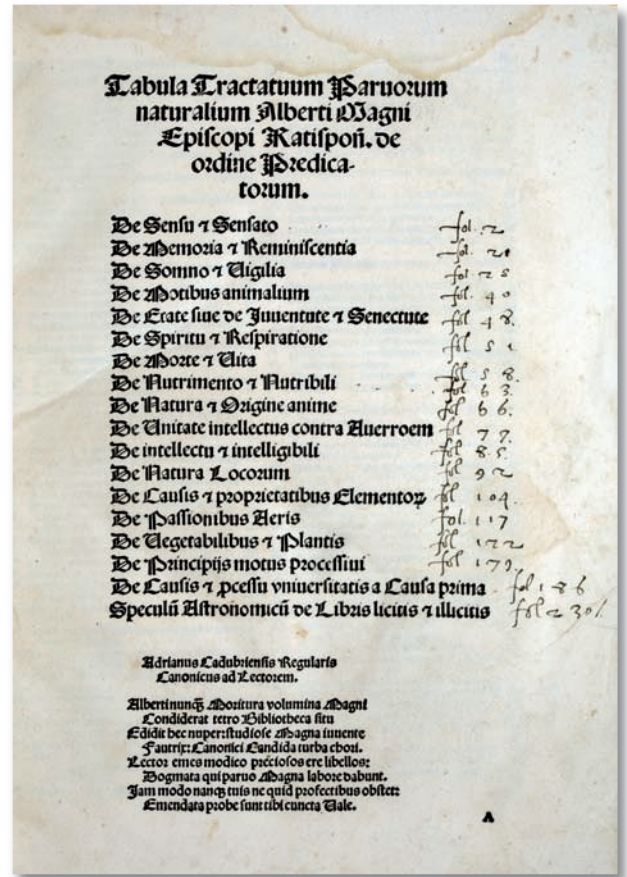 Tabula Tractatuum Paruorum
naturalium Alberti Magni
Episcopi Ratispoñ. de
ordine Predica-
torum.
De Sensu ⁊ Sensato fol. 2
De Memoria ⁊ Reminiscentia fol. 20
De Somno ⁊ Uigilia fol 25
De Motibus animalium fol. 40
De Etate siue de Iuuentute ⁊ Senectute fol 48.
De Spiritu ⁊ Respiratione fol 51
De Morte ⁊ Uita fol 58.
De Nutrimento ⁊ Nutribili fol 63.
De Natura ⁊ Origine anime fol 66.
De Unitate intellectus contra Auerroem fol 77.
De intellectu ⁊ intelligibili fol 85.
De Natura Locorum fol 92
De Causis ⁊ proprietatibus Elementoꝝ fol 104.
De Passionibus Aeris fol. 117
De Uegetabilibus ⁊ Plantis fol 122
De Principijs motus processiui fol 179.
De Causis ⁊ ꝓcessu vniuersitatis a Causa prima fol 186
Speculū Astronomicū de Libris licitis ⁊ illicitis fol 230
Adrianus Cadubriensis Regularis
Canonicus ad Lectorem.
Alberti nunqꝫ Moritura volumina Magni
Condiderat tetro Bibliotheca situ
Edidit hec nuper: studiose Magna iuuente
Fautrix: Canonici Candida turba chori.
Lector emes modico preciosos ere libellos:
Dogmata qui paruo Magna labore dabunt.
Jam modo nanqꝫ tuis ne quid profectibus obstet:
Emendata probe sunt tibi cuncta Uale.
A